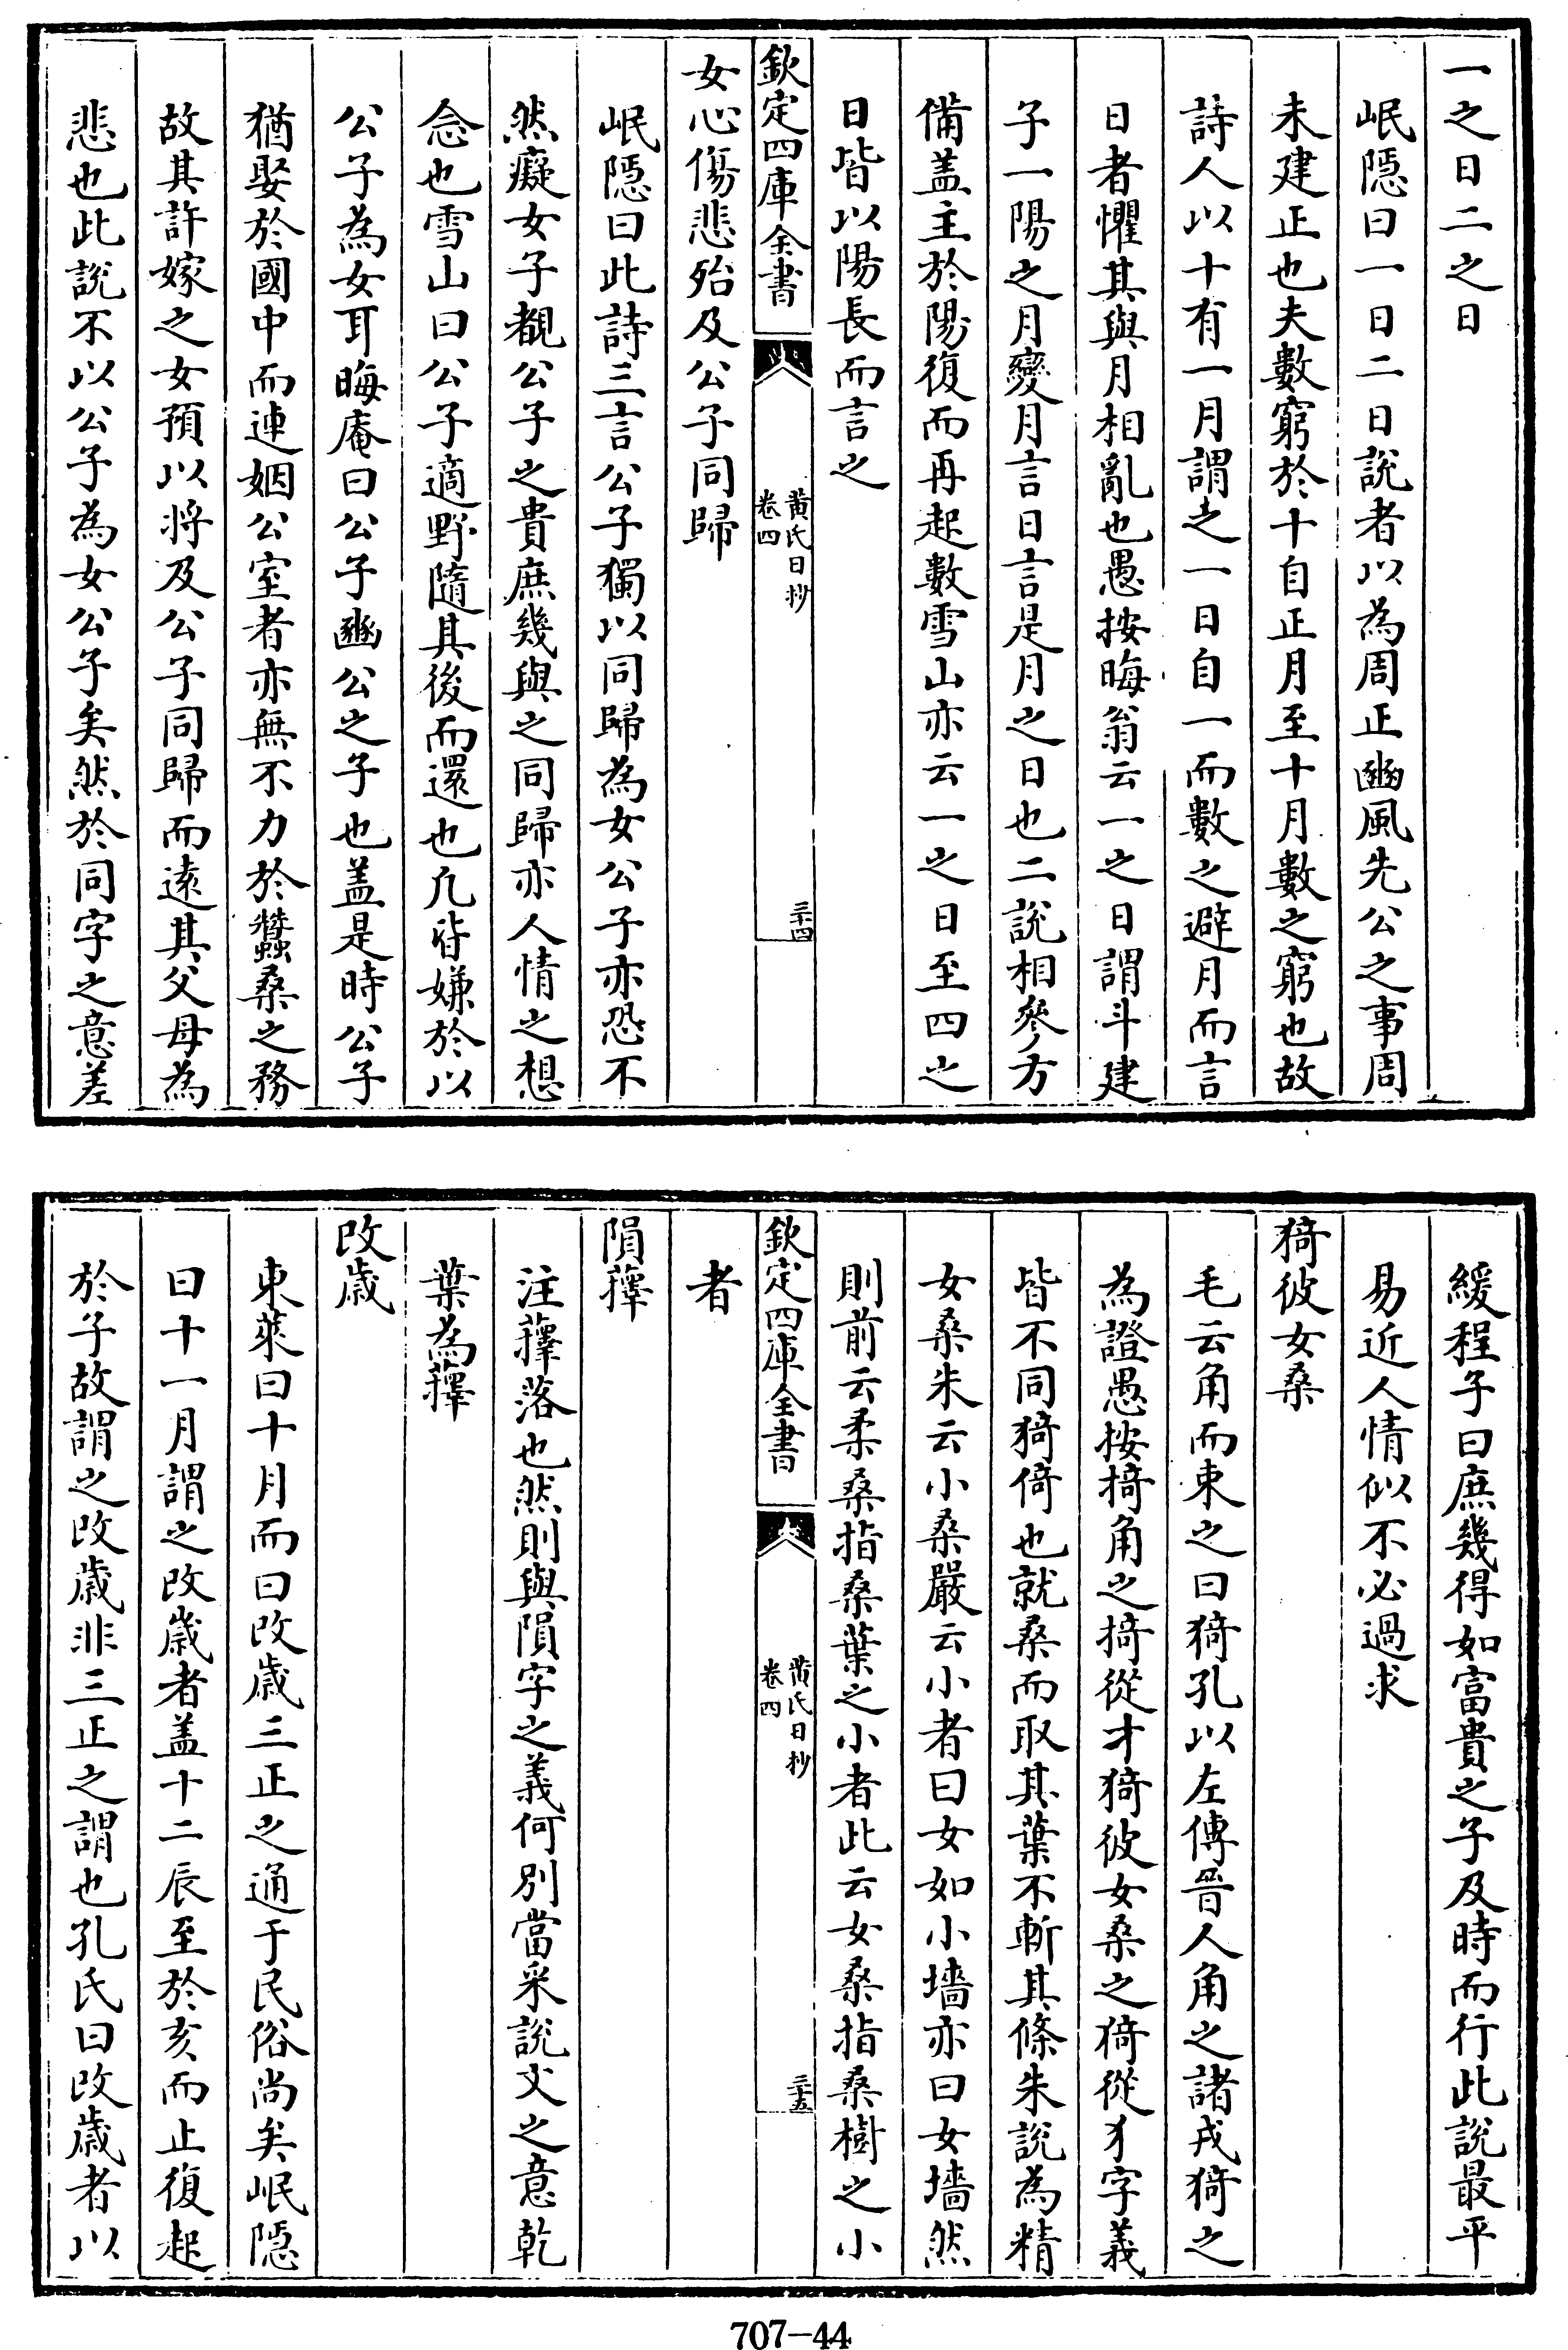 一之日二之日
岷隠曰一日二日説者以為周正豳風先公之事周
未建正也夫數窮於十自正月至十月數之窮也故
詩人以十有一月謂之一日自一而數之避月而言
日者懼其與月相亂也愚按晦翁云一之日謂斗建
子一陽之月變月言日言是月之日也二説相參方
備盖主於陽復而再起數雪山亦云一之日至四之
日皆以陽長而言之
欽定四庫全書
黄氏日抄
卷四
三十四
女心傷悲殆及公子同歸
岷隠曰此詩三言公子獨以同歸為女公子亦恐不
然癡女子覩公子之貴庶幾與之同歸亦人情之想
念也雪山曰公子適野隨其後而還也凢皆嫌於以
公子為女耳晦庵曰公子豳公之子也盖是時公子
猶娶於國中而連姻公室者亦無不力於蠶桑之務
故其許嫁之女預以將及公子同歸而逺其父母為
悲也此説不以公子為女公子矣然於同字之意差
緩程子曰庶幾得如富貴之子及時而行此説最平
易近人情似不必過求
猗彼女桑
毛云角而束之曰猗孔以左傳晉人角之諸戎猗之
為證愚按掎角之掎從才猗彼女桑之猗從犭字義
皆不同猗倚也就桑而取其葉不斬其條朱説為精
女桑朱云小桑嚴云小者曰女如小墻亦曰女墻然
則前云柔桑指桑葉之小者此云女桑指桑樹之小
欽定四庫全書
黄氏日抄
卷四
三十五
者
隕蘀
注蘀落也然則與隕字之義何别當采説文之意乾
葉為蘀
改歳
東萊曰十月而曰改歳三正之通于民俗尚矣岷隠
曰十一月謂之改歳者盖十二辰至於亥而止復起
於子故謂之改歳非三正之謂也孔氏曰改歳者以
707-44